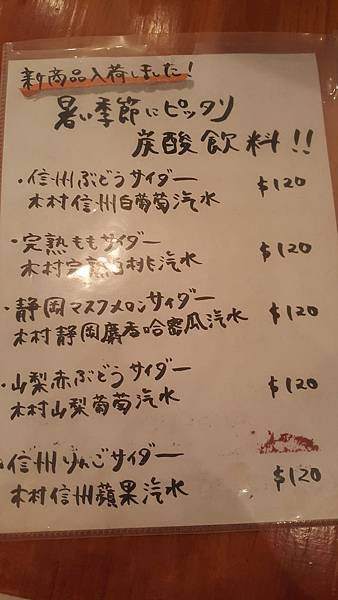 新商品入荷しました!
暑い季節にピッタリ
炭酸飲料!!
・信州ぶどうサイダー $120
木村信州白葡萄汽水
・完熟ももサイダー $120
木村完熟白桃汽水
・静岡マスクメロンサイダー $120
木村静岡麝香哈密瓜汽水
・山梨赤ぶどうサイダー $120
木村山梨葡萄汽水
・信州りんごサイダー $120
木村信州蘋果汽水